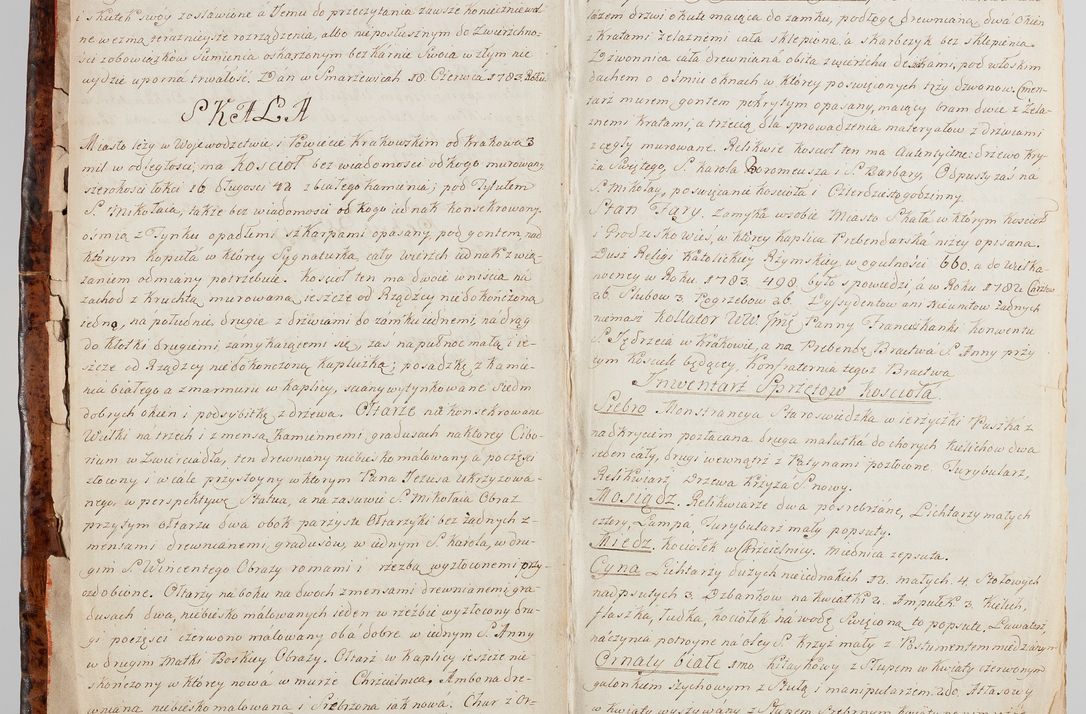 i skutek swoy zostawione á Jemu do przeczytania zawsze koniecznie wol
ne wezmą teraznieysze rozrządzenia, albo nieposłusznym do Zwierzchno-
ści zobowiązków Sumienia oskarzonym bezkárnie Swoia w złym nie
wydzie uporna trwałość. Dán w Smarzewicach 18. Czerwca 1783. Roku
SKAŁÁ
Miasto leży w Woiewodztwie i Powiecie Krakowskim od krakowa 3
mil w odległości, ma Kościoł bez wiadomości od kogo murowany
szerokości łokci 16 długości 42 z białego kamienia; pod Tytułem
S. Mikołaia, także bez wiadomości od kogo iednak konsekrowany.
ośmią z Tynku opadłemi szkarpami opasany, pod gontem, nad
którym kopuła w którey Sygnaturka, cały wierzch iednak z wią
zaniem odmiany potrzebuie. Kościoł ten ma dwoie wniścia na
zachod z kruchtą murowaną ieszcze od Rządzcy nie dokończoną
iedno, na południe drugie z drzwiami do zamku iednemi, na drąg
do kłotki drugiemi zamykaiącemi się, zas na pułnoc małą i ie-
szcze od Rządzcy niedokończoną kapliczką; posadzkę z kamie-
nia białego a z marmuru w kaplicy, sciany wytynkowane Siedm
dobrych okien i podsybitkę z drzewa. Ołtarze nie konsekrowane
Wielki na trzech i z mensą kamiennemi gradusach na którey Cibo-
rium w Zwierciadła, ten drewniany niebiesko malowany á poczęści
złocony i wcale przystoyny w którym Pana Jezusa ukrzyzowa-
nego, w perspektywę Statua, a na zasuwie S. Mikołaia Obraz
przytym ołtarzu dwa obok parzyste Ołtarzyki bez żadnych z-
mensami drewnianemi gradusów, w iednym S. Karola, w dru-
gim S. Wincentego Obrazy romami i rzezbą wyzłoconemi przy-
ozdobione. Ołtarzy na boku na dwoch z mensami drewnianemi gra-
dusach dwa, niebiesko malowanych ieden w rzeźbie wyzłocony dru-
gi poczęści czerwono malowany obá dobre w iednym S. Anny
w drugim Matki Boskiey Obrazy. Ołtarz w Kaplicy ieszcze nie-
skończony w którey nowá w murze Chrzcielnica. Ambona dre-
wniana niebiesko malowana i Srebrzona iak nowa. Chor z Or-
łázem drzwi okute maiąca do zamku, podłogę drewnianą dwa Okien
z Kratami żelaznemi cała sklepiona á skarbczyk bez sklepienia.
Dzwonnica cała drewniana obita z wierzchu deskami, pod włoskim
dachem o ośmiu oknach w którey poswięconych trzy dzwonow. Cmen-
tarz murem gontem pokrytym opasany, maiący bram dwie z żela-
znemi kratami, a trzecią dla sprowadzenia materyałow z drzwiami
z cegły murowane. Relikwie kościoł ten ma Autentyczne: drzewo Krzy-
ża Swiętego, S. karola Boromeusza i S. Barbary, Odpusty zaś na
S. Mikołay, poswięcania kościoła i Czterdziestogodzinny.
Stan Fary. Zamyka w sobie Miasto Skałá w którym kościoł
i Grodzisko wieś, w którey kaplica Prebendarská niżey opisana.
Dusz Religi Katolickiey Rzymskiey w ogulności 660. a do Wielka-
nocney w Roku 1783. 498. było spowiedzi, á w Roku 1782 Chrztow
26. Slubow 3. Pogrzebow 26. Dyssydentow ani Nieunitow żadnych
niemasz Kollator WW. Jmć Panny Franciszkanki konwentu
S. Jędrzeia w krakowie, a na Prebendę Bractwá S. Anny przy
tym kosciele będącey, Konfraternia tegoż Bractwa
Inwentarz Sprzętow Kościoła.
Srebro. Monstrancya Staroswiedzka w ierzyczki Puszka z
nadkryciem pozłacana druga malutka do chorych kielichow dwa
ieden cały, drugi wewnątrz z Patynami pozłocone. Turybularz,
Relikwiarz Drzewa Krzyża S. nowy.
Mosiądz. Relikwiarze dwa posrebrżane, Lichtarzy małych
cztery, Lampa Turybularz mały popsuty.
Miedź. Kociołek w Chrzcielnicy. Miednica zepsuta.
Cyna Lichtarzy dużych nieiednakich 12. małych 4. Stołowych
nadpsutych 3. Dzbankow na kwiatki 2. Ampułek 3. Kielich,
flaszka, łudka, kociołek ná wodę Swięconą to popsute. Lawaterz,
náczynia potroyne na oley S. Krzyż mały z Postumentem miedzianym
Ornaty białe 1mo kitaykowy z Słupem w kwiaty czerwonym
galonkiem szychowym z Stułą i manipularzem. 2do. Atłasowy
w kwiaty wyszywány z Słupem Srebrnym